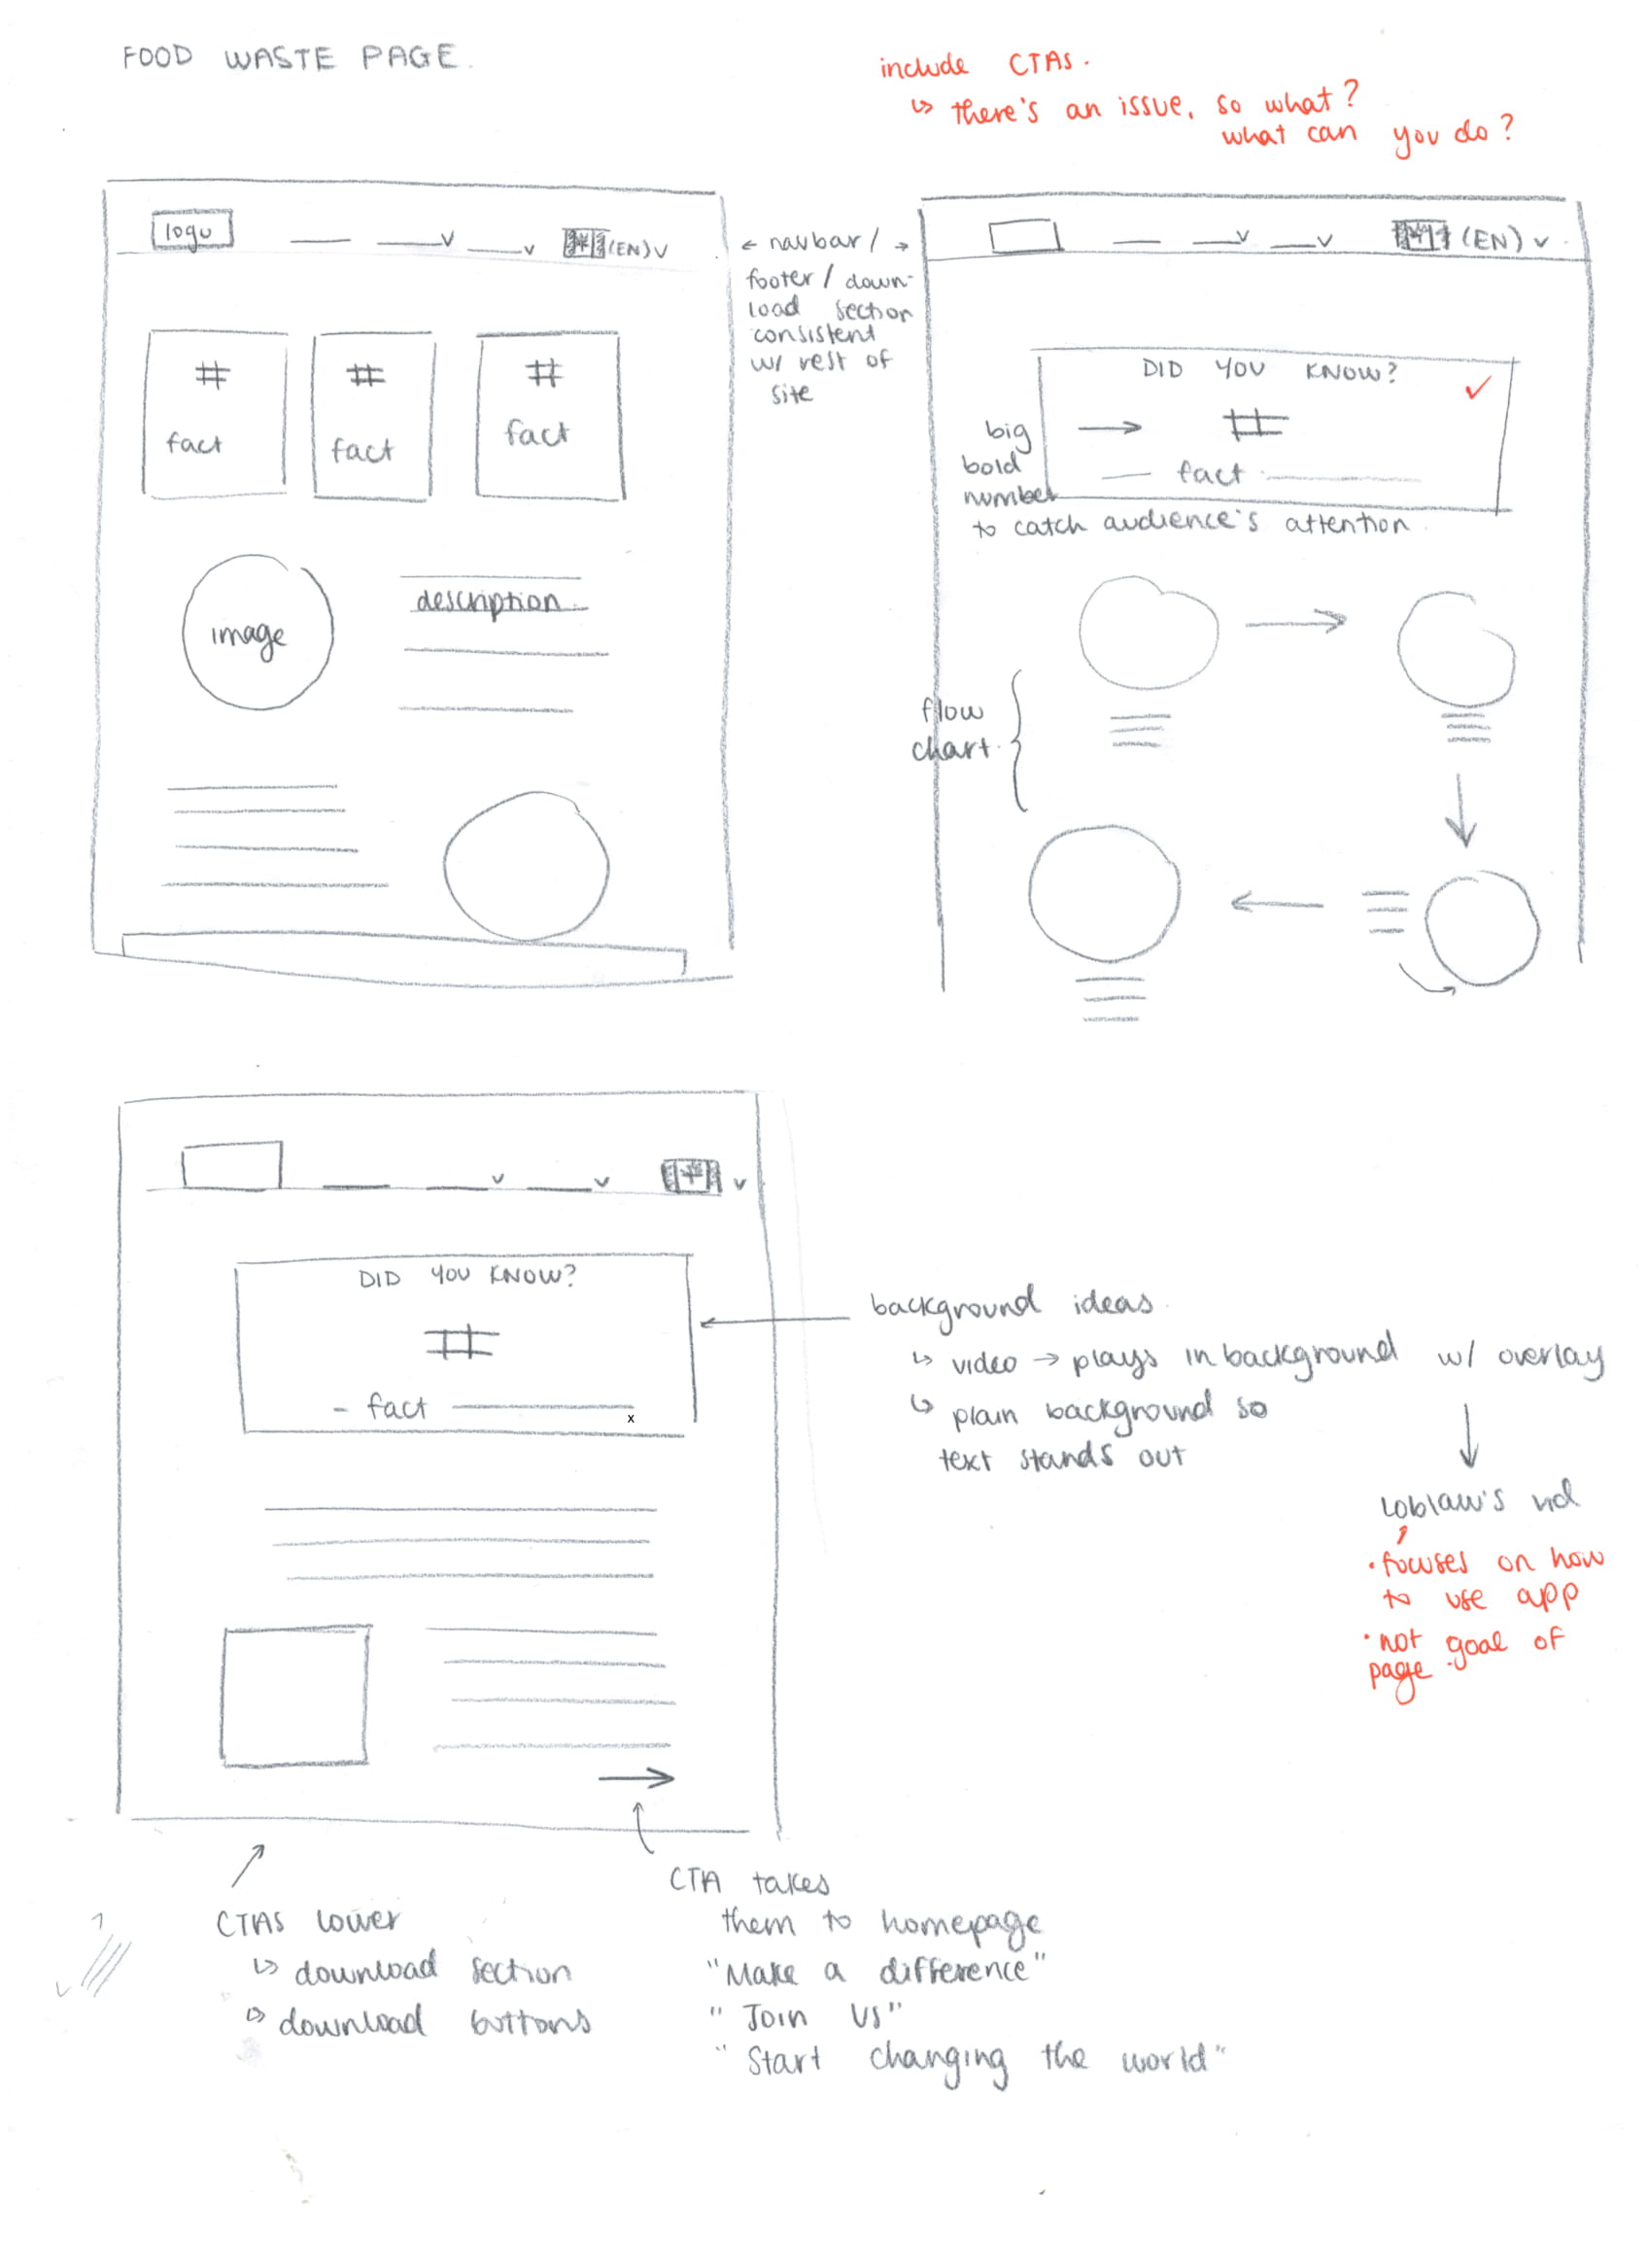 FOOD WASTE PAGE.
include CTAs.
↳ there's an issue, so what?
what can you do?
logo
(EN)
#
fact
#
fact
#
fact
image
description
← navbar / →
footer / down-
load section
consistent
w/ rest of
site
(EN)
DID YOU KNOW?
✓
#
fact
big
bold
number
to catch audience's attention.
flow
chart.
DID YOU KNOW?
#
- fact
x
background ideas.
↳ video → plays in background w/ overlay
↳ plain background so
text stands out
Loblaw's vid
• focuses on how
to use app
• not goal of
page.
CTAs lower
↳ download section
↳ download buttons
CTA takes
them to homepage
"Make a difference"
"Join Us"
"Start changing the world"